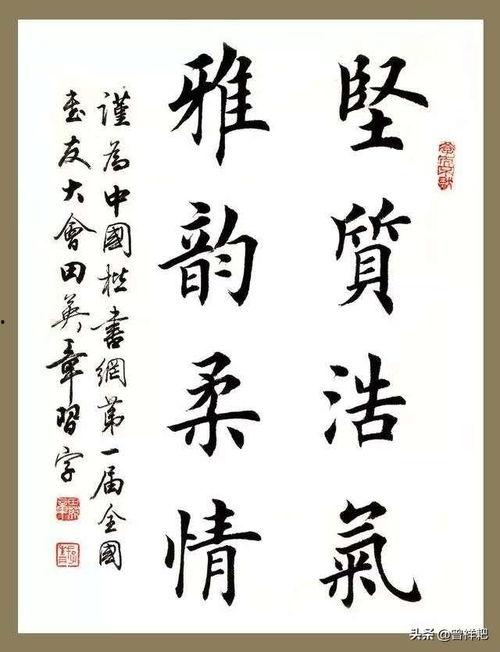 堅質浩氣
雅韵柔情
謹為中國楷書網第一届全國
書友大會田英章習字
头条 @曾祥耙